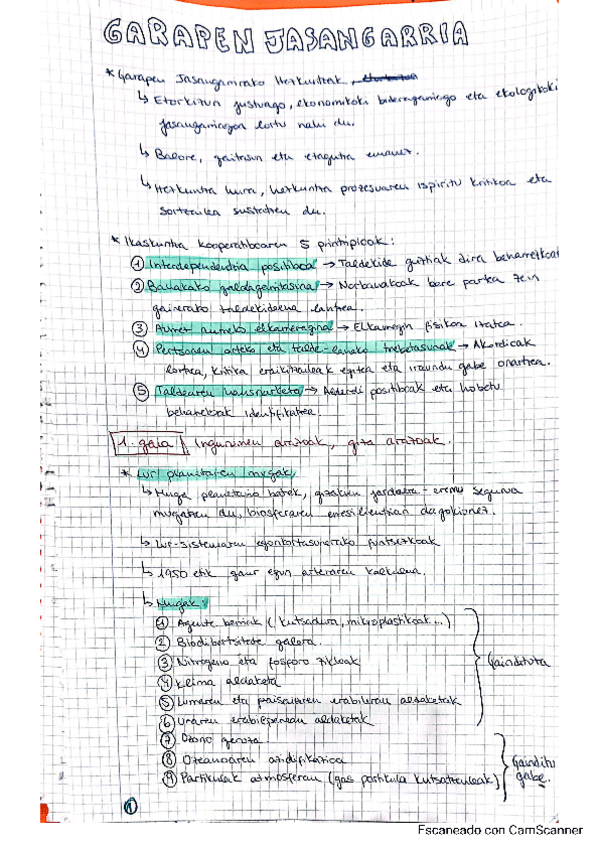 GARAPEN JASANGARRIA
* Garapen Jasangarrirako Hezkuntzak,
↳ Etorkizun justuago, ekonomikoki bideragarriago eta ekologikoki
jasangarriagoa lortu nahi du.
↳ Balore, gaitasun eta ezagutza emanez.
↳ Hezkuntza hura, hezkuntza prozesuaren ispiritu kritikoa eta
sortzailea sustatzen du.
* Ikaskuntza kooperatiboaren 5 printzipioak:
① Interdependentzia positiboa → Taldekide guztiak dira beharrezkoak
② Banakako galdagarritasuna → Norbanakoak bere partea zein
gainerako taldekideena lantzea.
③ Aurrez aurreko elkarreragina → Elkarregin fisikoa izatea.
④ Pertsonen arteko eta talde-lanako trebetasunak → Akordioak
lortzea, kritika eraikitzaileak egitea eta iraindu gabe onartzea.
⑤ Taldearen hausnarketa → Alderdi positiboak eta hobetu
beharrekoak identifikatzea
1. gaia Ingurumen arazoak, giza arazoak.
* Lur planetaren mugak,
↳ Muga planetario batek, gizakien jarduera-eremu segurua
mugatzen du, biosferaren erresilientzian dagokionez.
↳ Lur-sistemaren egonkortasunerako funtsezkoak
↳ 1950 etik gaur egun arteraren kalkulua.
↳ Mugak:
① Agente berriak (kutsadura, mikroplastikoak...)
② Biodibertsitate galera.
③ Nitrogeno eta fosforo zikloak
④ Klima aldaketa
⑤ Lurraren eta paisaiaren erabileran aldaketak
⑥ Uraren erabileran aldaketak
Gaindituta
⑦ Ozono geruza.
⑧ Ozeanoaren azidifikazioa
⑨ Partikulak atmosferan (gas partikula kutsatzaileak)
Gainditu
gabe.
①
Escaneado con CamScanner